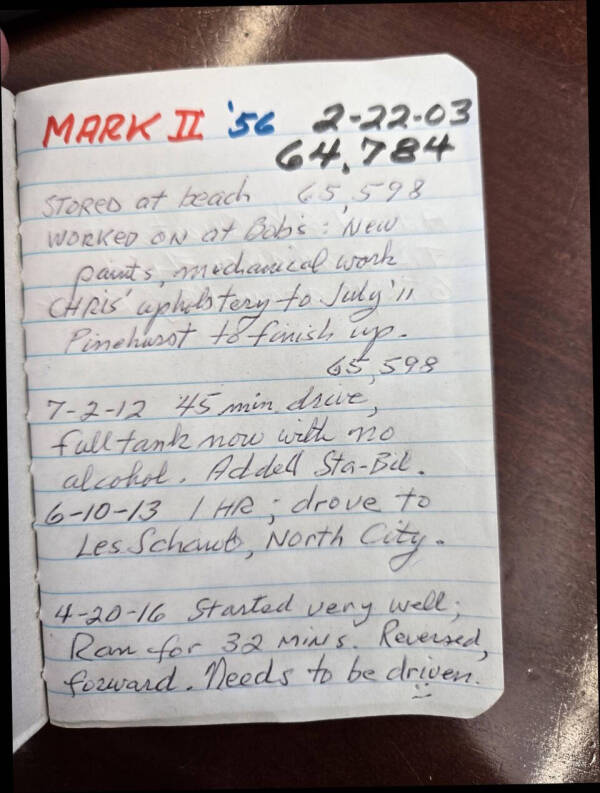 MARK II '56 2-22-03
64,784
STORED at beach 65,598
WORKED ON at Bob's: New
paints, mechanical work
CHRIS' upholstery to July '11
Pinehurst to finish up.
65,598
7-2-12 45 min drive,
full tank now with no
alcohol. Added Sta-Bil.
6-10-13 1 HR; drove to
Les Schawb, North City.
4-20-16 Started very well;
Ran for 32 MINS. Reversed,
forward. Needs to be driven.